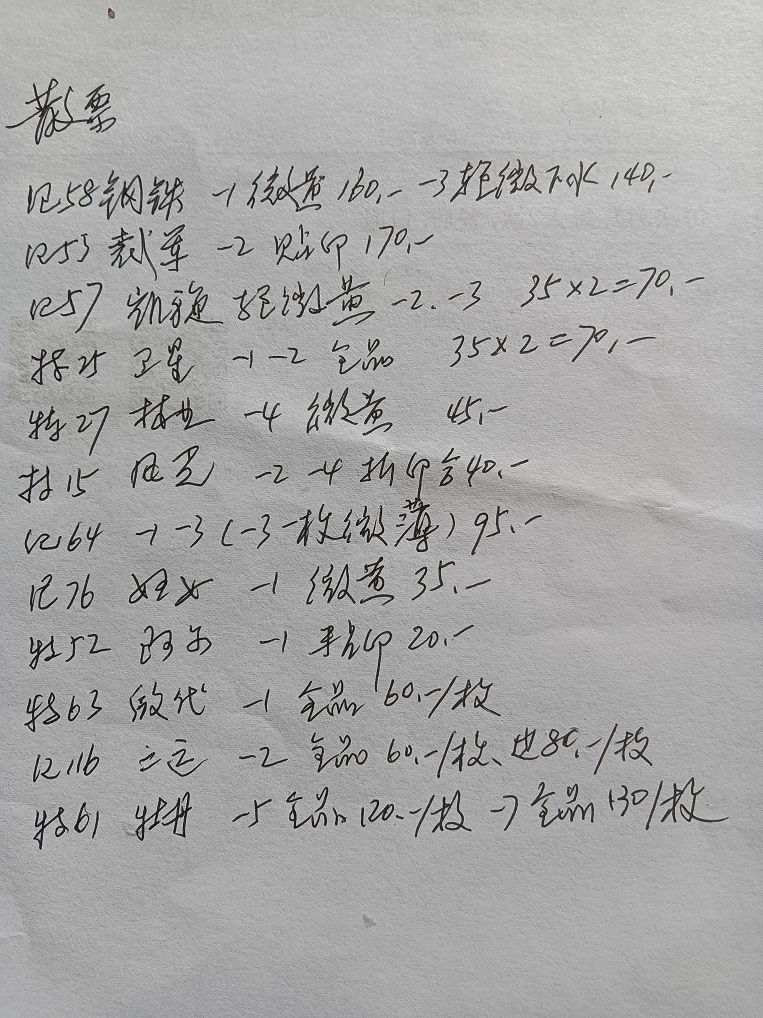 散票
纪58 钢铁 -1 微黄 160,- -3 轻微下水 140,-
纪53 裁军 -2 贴印 170,-
纪57 轻微黄 -2. -3 35×2=70,-
特25 卫星 -1 -2 全品 35×2=70,-
特27 林业 -4 微黄 45,-
特15 -2 -4 折印 40,-
纪64 -1 -3 (-3 一枚微薄) 95,-
纪76 妇女 -1 微黄 35,-
特52 阿尔 -1 20,-
特63 -1 全品 60,-/枚
纪116 二运 -2 全品 60,-/枚、 80,-/枚
特61 牡丹 -5 全品 120,-/枚 -7 全品 130/枚